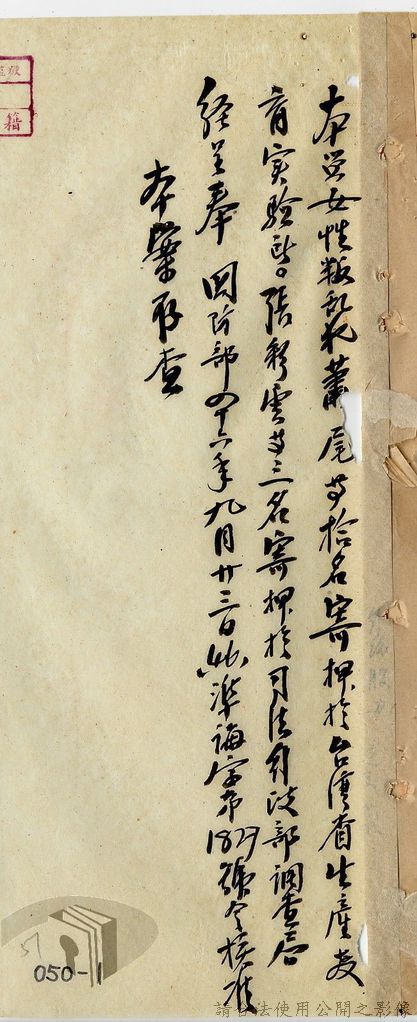 本監女性叛亂犯蕭尾等拾名寄押於台灣省生產教
育實驗所。張彩雲等三名寄押於司法行政部調查局
经呈奉 國防部四十六年九月廿三日(46)準海字第1829號令核准
本案存查
籍
050-1
請合法使用公開之影像